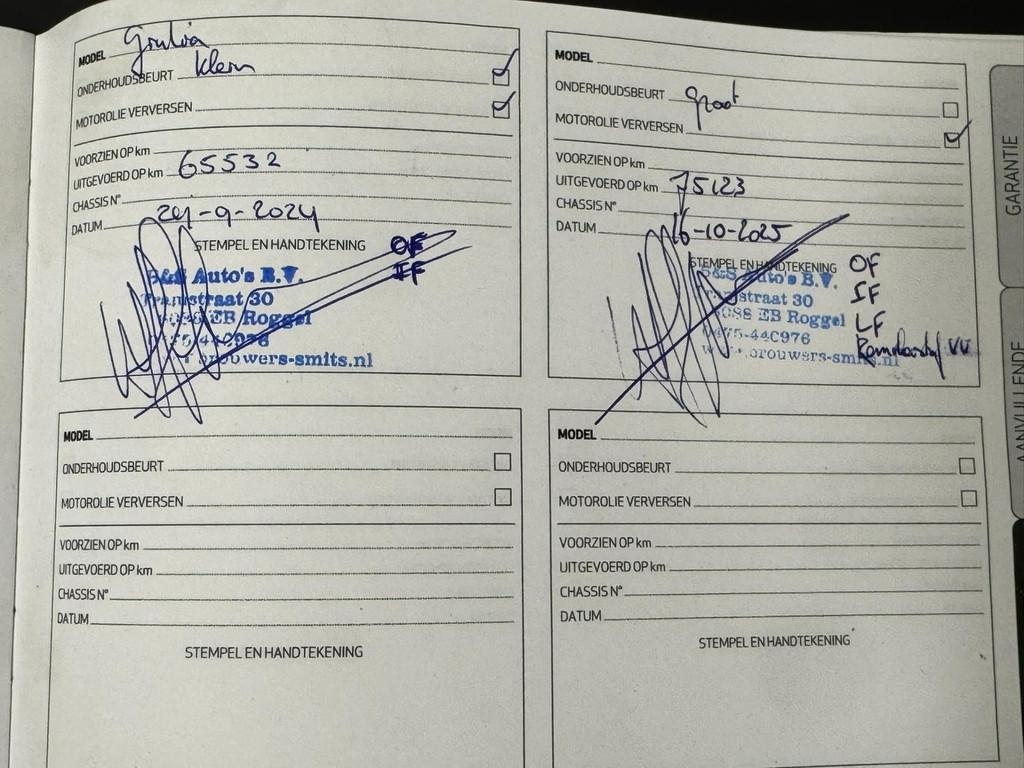 MODEL Giulia
ONDERHOUDSBEURT klein
MOTOROLIE VERVERSEN
VOORZIEN OP km
UITGEVOERD OP km 65532
CHASSIS N°
DATUM 24-9-2024
STEMPEL EN HANDTEKENING
OF
IF
Auto's B.V.
straat 30
EB Roggel
wers-smits.nl
MODEL
ONDERHOUDSBEURT groot
MOTOROLIE VERVERSEN
VOORZIEN OP km
UITGEVOERD OP km 75123
CHASSIS N°
DATUM 16-10-2025
STEMPEL EN HANDTEKENING
OF
IF
LF
Remvloeistof VV
Auto's B.V.
straat 30
EB Roggel
0475-440976
brouwers-smits.nl
MODEL
ONDERHOUDSBEURT
MOTOROLIE VERVERSEN
VOORZIEN OP km
UITGEVOERD OP km
CHASSIS N°
DATUM
STEMPEL EN HANDTEKENING
MODEL
ONDERHOUDSBEURT
MOTOROLIE VERVERSEN
VOORZIEN OP km
UITGEVOERD OP km
CHASSIS N°
DATUM
STEMPEL EN HANDTEKENING
GARANTIE
AANVULLENDE